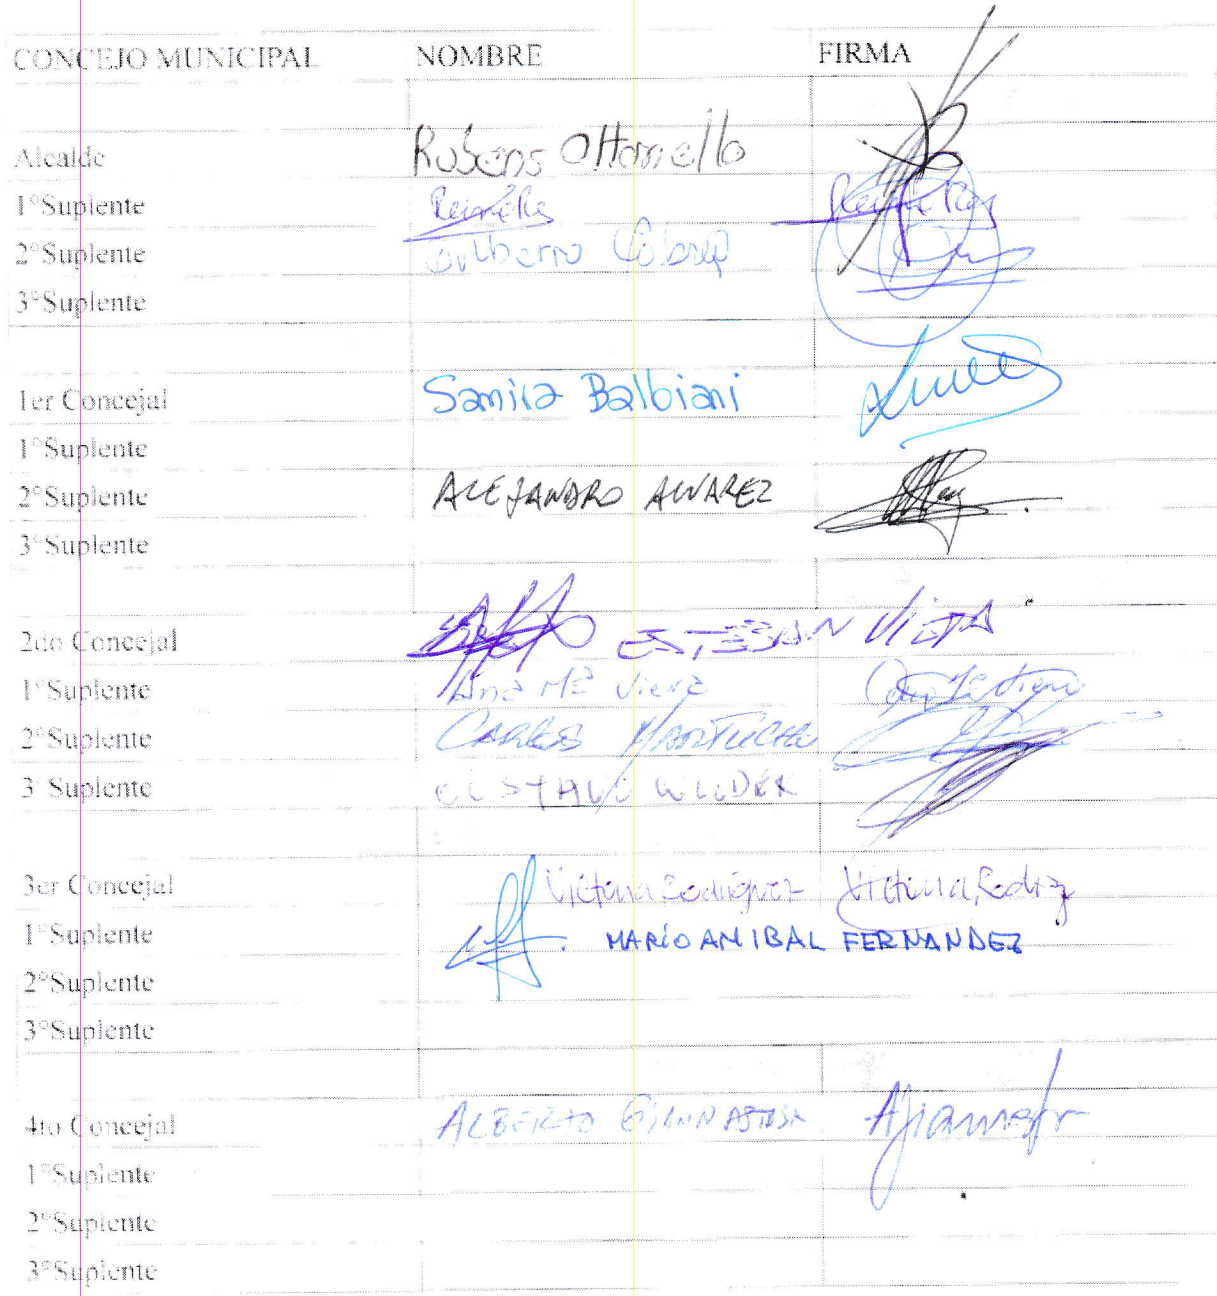 CONCEJO MUNICIPAL NOMBRE FIRMA
Alcalde Rubens Ottonello
1°Suplente
2°Suplente
3°Suplente
1er Concejal Samira Balbiani
1°Suplente
2°Suplente ALEJANDRO ALVAREZ
3°Suplente
2do Concejal ESTEBAN VIERA
1°Suplente Ana Mª Viera
2°Suplente CARLOS
3°Suplente GUSTAVO WILDER
3er Concejal Victoria Rodriguez Victoria Rodrig
1°Suplente MARIO ANIBAL FERNANDEZ
2°Suplente
3°Suplente
4to Concejal ALBERTO
1°Suplente
2°Suplente
3°Suplente